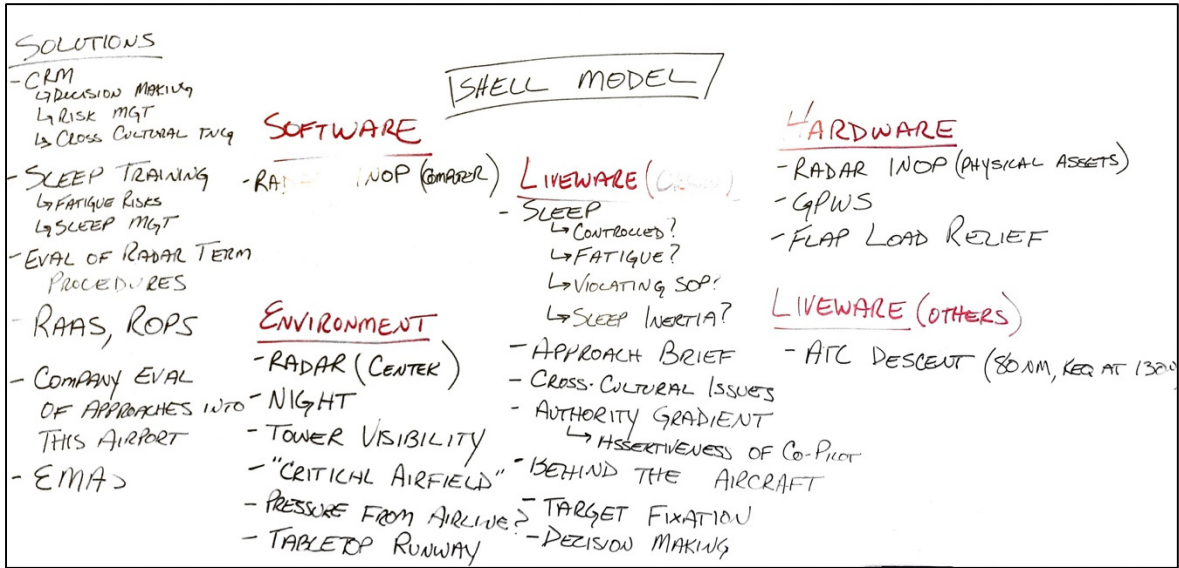 SHELL MODEL
SOLUTIONS
- CRM
↳ DECISION MAKING
↳ RISK MGT
↳ CROSS CULTURAL TNG
- SLEEP TRAINING
↳ FATIGUE RISKS
↳ SLEEP MGT
- EVAL OF RADAR TERM
PROCEDURES
- RAAS, ROPS
- COMPANY EVAL
OF APPROACHES INTO
THIS AIRPORT
- EMAS
SOFTWARE
- RADAR INOP (COMPUTER)
ENVIRONMENT
- RADAR (CENTER)
- NIGHT
- TOWER VISIBILITY
- "CRITICAL AIRFIELD"
- PRESSURE FROM AIRLINE?
- TABLETOP RUNWAY
LIVEWARE
- SLEEP
↳ CONTROLLED?
↳ FATIGUE?
↳ VIOLATING SOP?
↳ SLEEP INERTIA?
- APPROACH BRIEF
- CROSS-CULTURAL ISSUES
- AUTHORITY GRADIENT
↳ ASSERTIVENESS OF CO-PILOT
- BEHIND THE AIRCRAFT
- TARGET FIXATION
- DECISION MAKING
HARDWARE
- RADAR INOP (PHYSICAL ASSETS)
- GPWS
- FLAP LOAD RELIEF
LIVEWARE (OTHERS)
- ATC DESCENT (80 NM, REQ AT 130